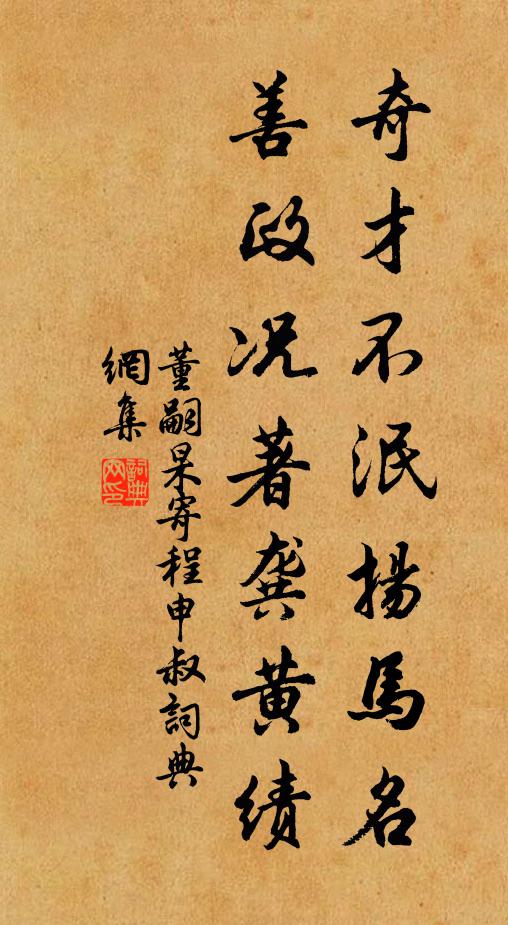 奇才不泯揚馬名
善政况著龔黄績
董嗣杲寄程申叔詞典
網集
詞典
网印